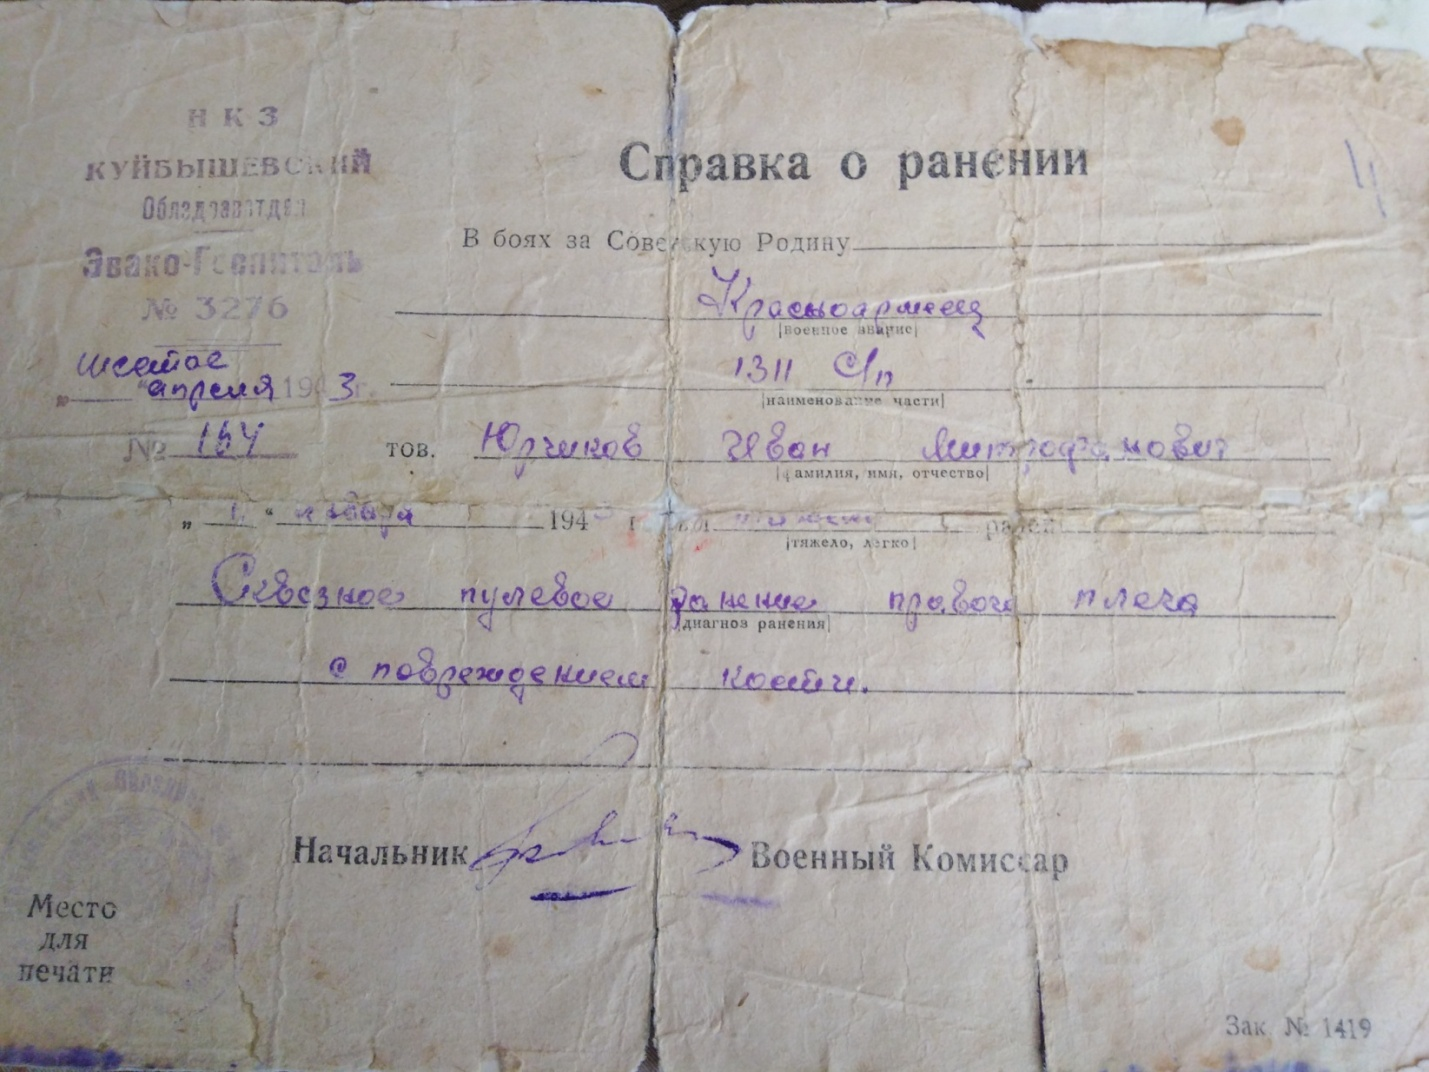 НКЗ
КУЙБЫШЕВСКИЙ
Облздравотдел
Эвако-Госпиталь
№ 3276
шестое
„ “ апреля 1943г.
№ 164
Справка о ранении
В боях за Советскую Родину
Красноармеец
|военное звание|
1311 С/п
|наименование части|
тов. Юрчиков Иван Митрофанович
|фамилия, имя, отчество|
194 г. ранен
|тяжело, легко|
Сквозное пулевое ранение правого плеча
|диагноз ранения|
с повреждением кости.
Начальник Военный Комиссар
Место
для
печати
Зак. № 1419